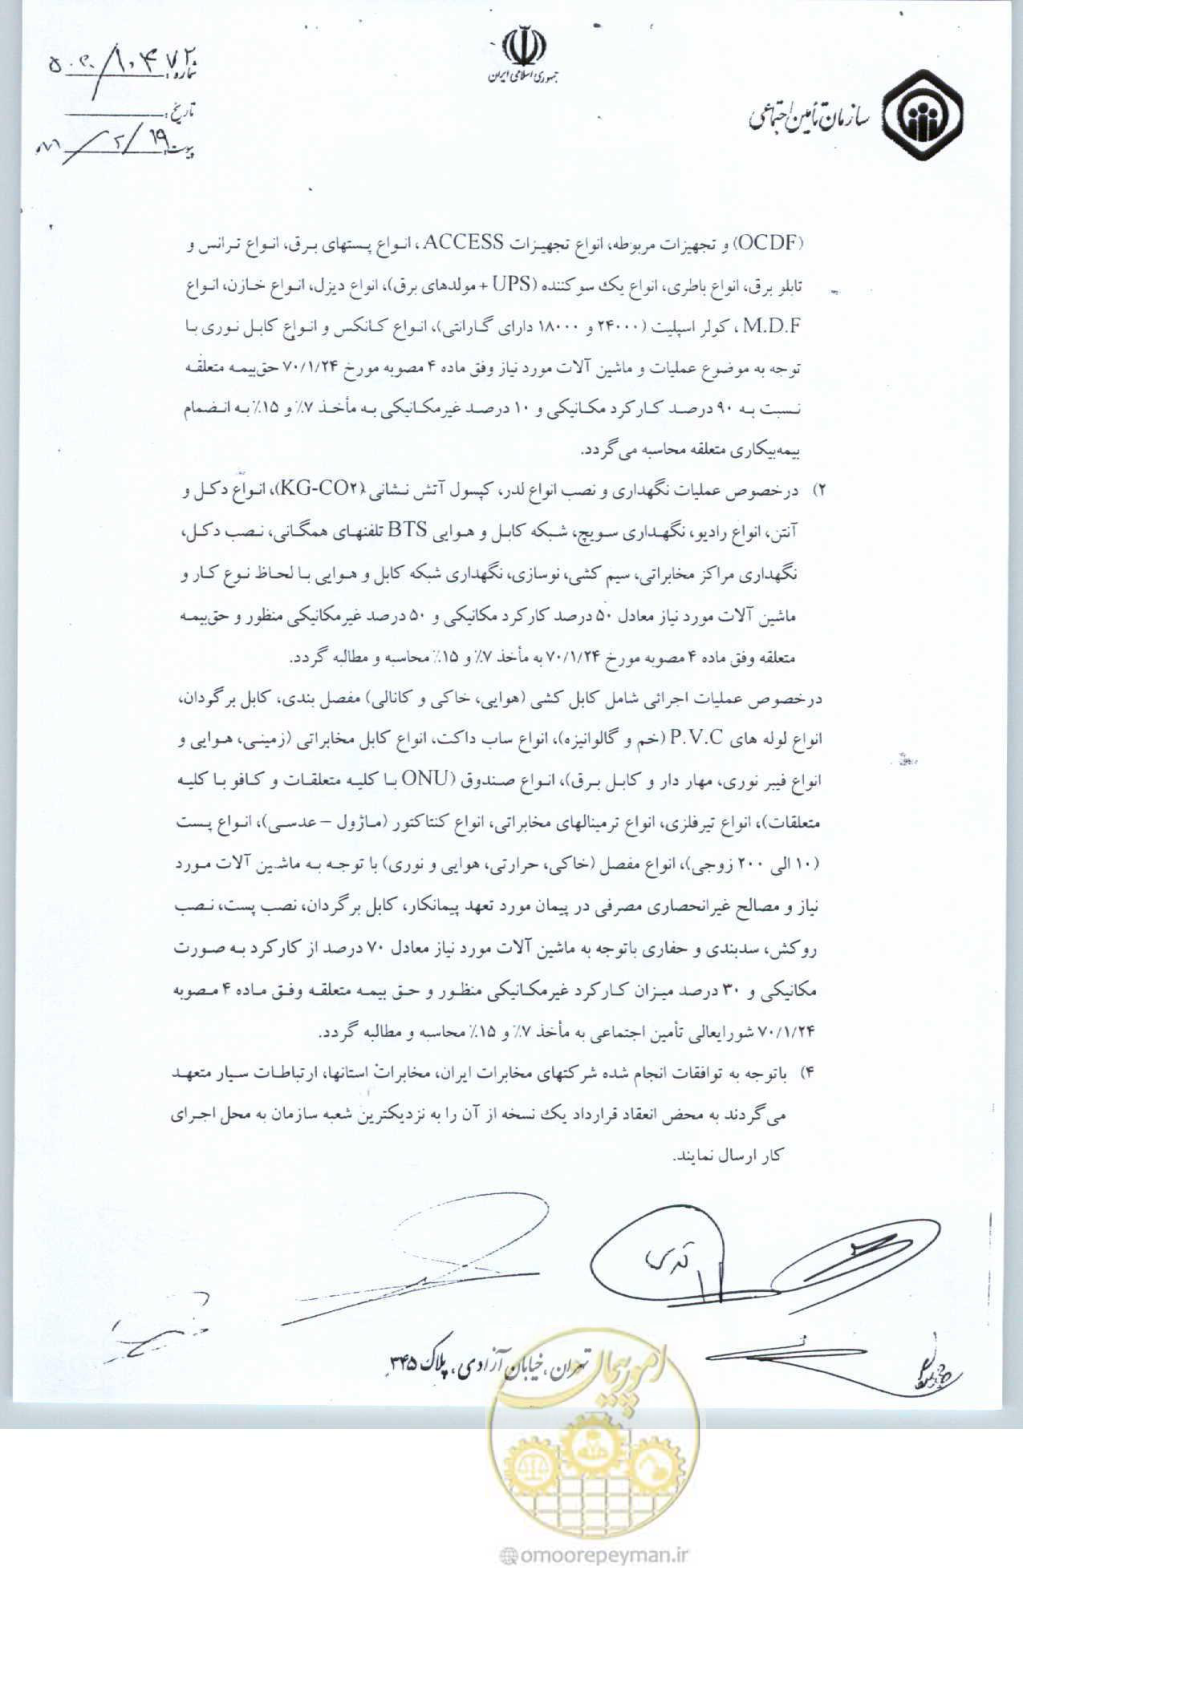 جمهوری اسلامی ایران
سازمان تأمین اجتماعی
شماره: ۵۰۲۰/۱۰۴۷۲
تاریخ:
پیوست: ۱۹/۲/
(OCDF) و تجهیزات مربوطه، انواع تجهیزات ACCESS، انواع پستهای برق، انواع ترانس و
تابلو برق، انواع باطری، انواع یک سو کننده (UPS + مولدهای برق)، انواع دیزل، انواع خازن، انواع
M.D.F ، کولر اسپلیت (۲۴۰۰۰ و ۱۸۰۰۰ دارای گارانتی)، انواع کانکس و انواع کابل نوری با
توجه به موضوع عملیات و ماشین آلات مورد نیاز وفق ماده ۴ مصوبه مورخ ۷۰/۱/۲۴ حق‌بیمه متعلقه
نسبت به ۹۰ درصد کارکرد مکانیکی و ۱۰ درصد غیرمکانیکی به مأخذ ۷٪ و ۱۵٪ به انضمام
بیمه‌بیکاری متعلقه محاسبه می‌گردد.
۲) درخصوص عملیات نگهداری و نصب انواع لدر، کپسول آتش نشانی (KG-CO۲)، انواع دکل و
آنتن، انواع رادیو، نگهداری سویچ، شبکه کابل و هوایی BTS تلفنهای همگانی، نصب دکل،
نگهداری مراکز مخابراتی، سیم کشی، نوسازی، نگهداری شبکه کابل و هوایی با لحاظ نوع کار و
ماشین آلات مورد نیاز معادل ۵۰ درصد کارکرد مکانیکی و ۵۰ درصد غیرمکانیکی منظور و حق‌بیمه
متعلقه وفق ماده ۴ مصوبه مورخ ۷۰/۱/۲۴ به مأخذ ۷٪ و ۱۵٪ محاسبه و مطالبه گردد.
درخصوص عملیات اجرائی شامل کابل کشی (هوایی، خاکی و کانالی) مفصل بندی، کابل برگردان،
انواع لوله های P.V.C (خم و گالوانیزه)، انواع ساب داکت، انواع کابل مخابراتی (زمینی، هوایی و
انواع فیبر نوری، مهار دار و کابل برق)، انواع صندوق (ONU با کلیه متعلقات و کافو با کلیه
متعلقات)، انواع تیرفلزی، انواع ترمینالهای مخابراتی، انواع کنتاکتور (ماژول – عدسی)، انواع پست
(۱۰ الی ۲۰۰ زوجی)، انواع مفصل (خاکی، حرارتی، هوایی و نوری) با توجه به ماشین آلات مورد
نیاز و مصالح غیرانحصاری مصرفی در پیمان مورد تعهد پیمانکار، کابل برگردان، نصب پست، نصب
روکش، سدبندی و حفاری باتوجه به ماشین آلات مورد نیاز معادل ۷۰ درصد از کارکرد به صورت
مکانیکی و ۳۰ درصد میزان کارکرد غیرمکانیکی منظور و حق بیمه متعلقه وفق ماده ۴ مصوبه
۷۰/۱/۲۴ شورایعالی تأمین اجتماعی به مأخذ ۷٪ و ۱۵٪ محاسبه و مطالبه گردد.
۴) باتوجه به توافقات انجام شده شرکتهای مخابرات ایران، مخابرات استانها، ارتباطات سیار متعهد
می‌گردند به محض انعقاد قرارداد یک نسخه از آن را به نزدیکترین شعبه سازمان به محل اجرای
کار ارسال نمایند.
تهران، خیابان آزادی، پلاک ۳۴۵
امور پیمان
@omoorepeyman.ir